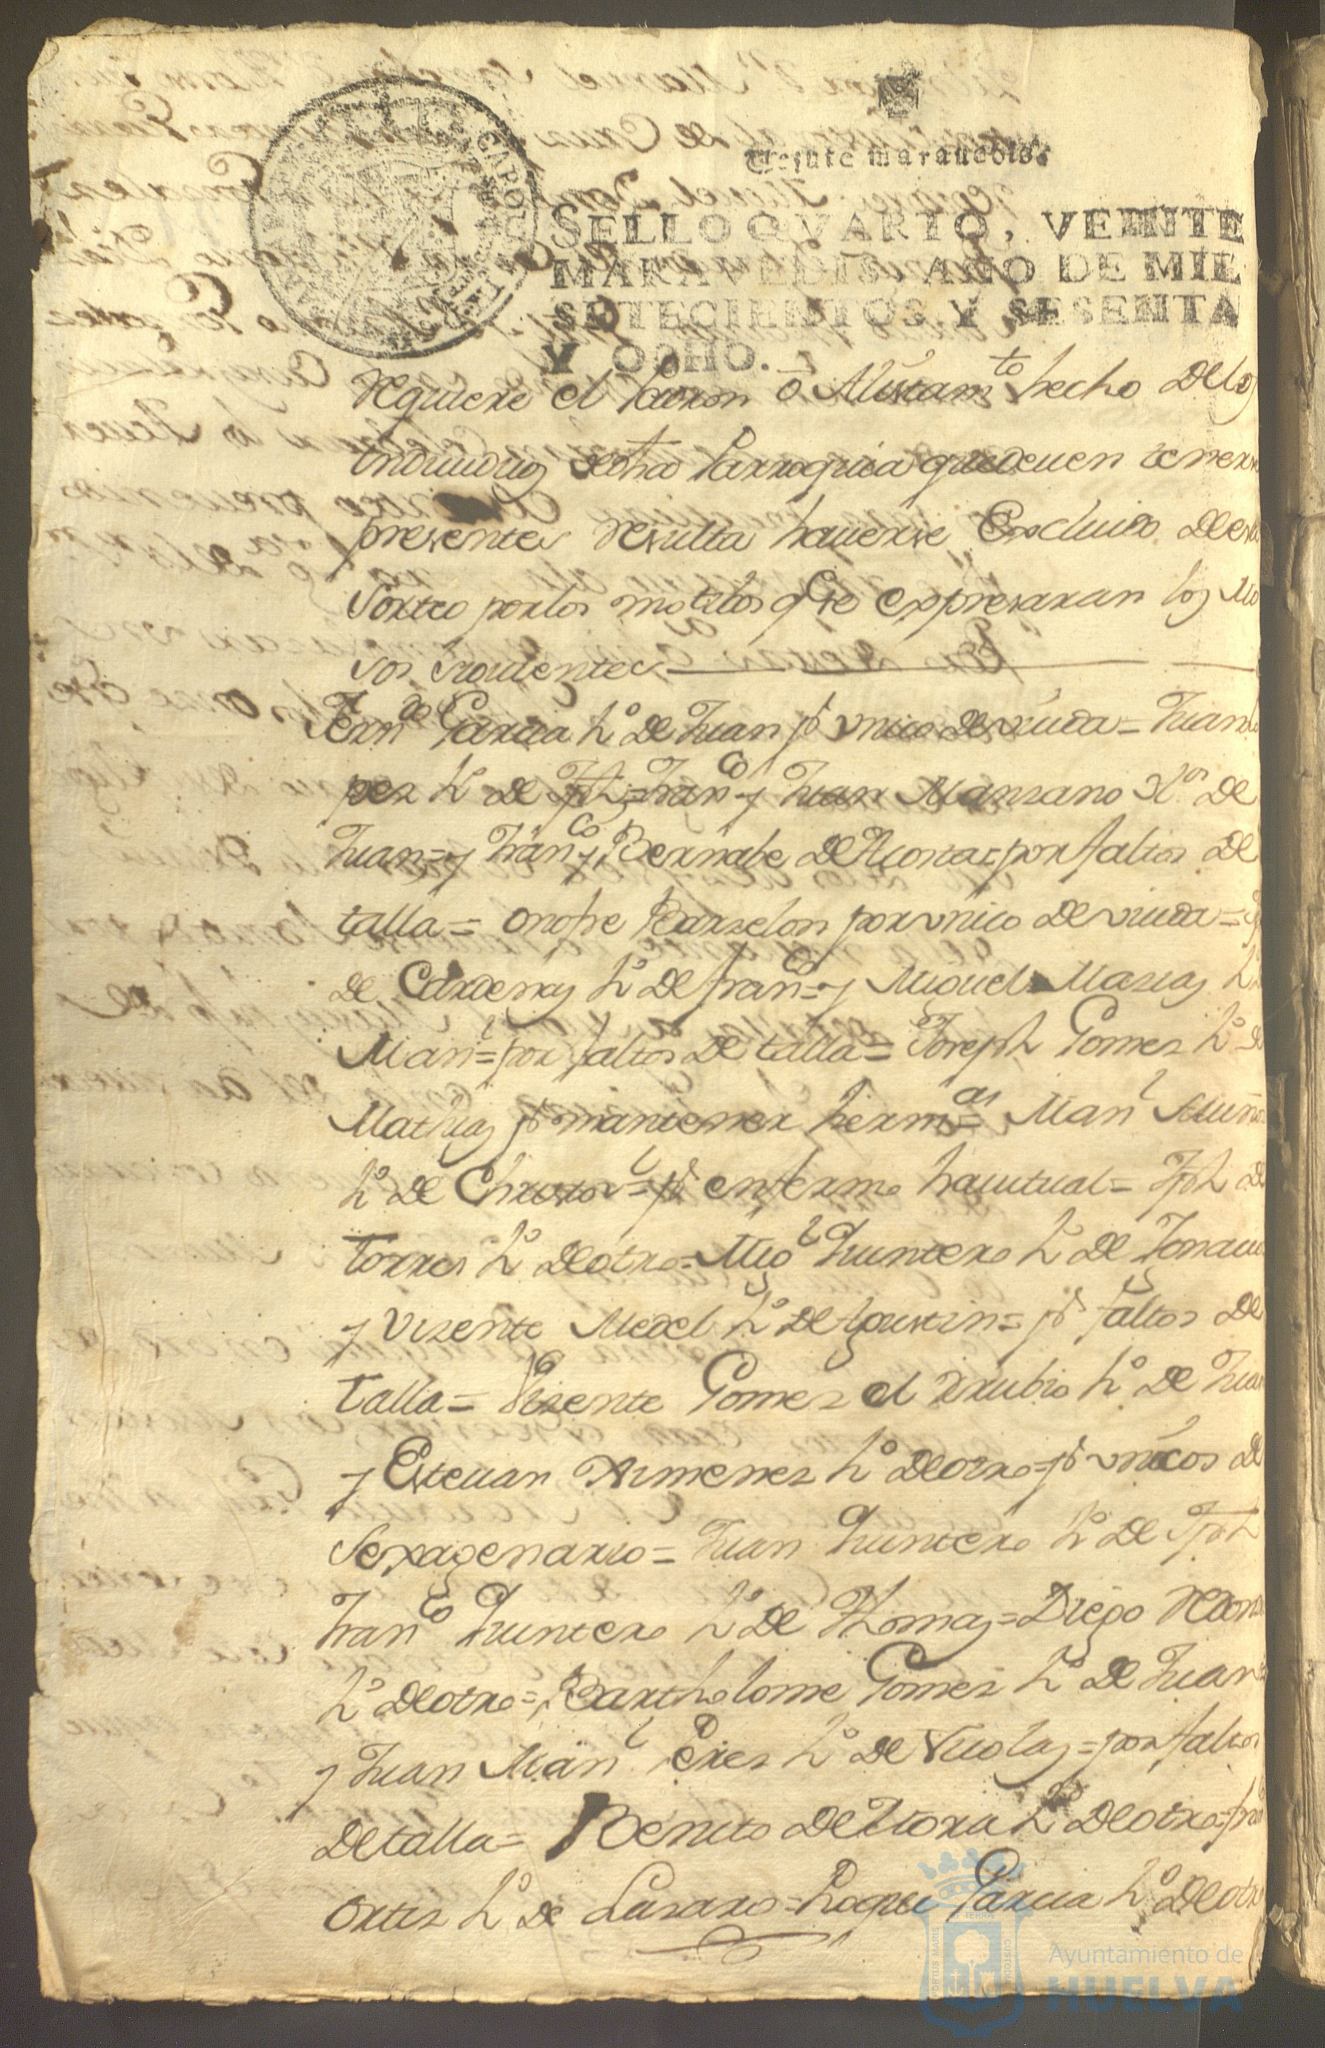 Veinte marauedis.
SELLO QVARTO, VEINTE
MARAVEDIS, AÑO DE MIL
SETECIENTOS Y SESENTA
Y OCHO.
requiere el Padron ô Alistam.to hecho de los
Indiuiduos de dha Parroquia que deuen tenerse
presentes resulta hauerse Excluido de este
Sorteo por los motibos q.e se expresaran los Mo
sos siguientes
Fern.do Garcia h.o de Juan p.r vnico de viuda = Juan Lo
pez h.o de Jph = Fran.co y Juan Manzano H.os de
Juan = y Fran.co y Bernabe de Acosta = por faltos de
talla = Onofre Barzelon por vnico de viuda =
de Cardenas h.o de fran.co = y Miguel Masias h.o
Man.l = por faltos de talla = Joseph Gomez h.o de
Mathias p.r mantener herm.as = Man.l Muño
h.o de Christov.l = p.r enfermo hauitual = Jph de
Torres h.o de otro = Mig.l Quintero h.o de Ignacio
y Visente Medel h.o de Agustin = p.r faltos de
talla = Visente Gomez el Rrubio h.o de Juan
y Esteuan Ximenez h.o de otro = p.r vnicos de
Sexagenario = Juan Quintero h.o de Jph
Fran.co Quintero h.o de Thomas = Diego Redon
h.o de otro = Bartholome Gomez h.o de Juan
y Juan Man.l Perez h.o de Nicolas = por faltos
de talla = Benito de Mora h.o de otro = fran
Ortiz h.o de Lasaro = Roque Garcia h.o de otro
Ayuntamiento de
HUELVA